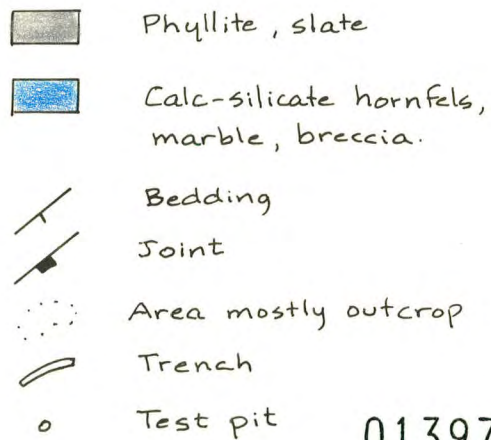 Phyllite, slate
Calc-silicate hornfels,
marble, breccia.
Bedding
Joint
Area mostly outcrop
Trench
Test pit
01397